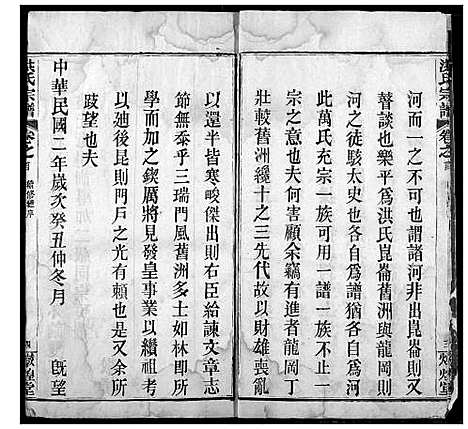 洪氏宗譜
卷之首
河而一之不可也謂諸河非出崑崙則又
瞽談也樂平爲洪氏崑崙舊洲與龍岡則
河之徒駭太史也各自爲譜猶各自爲河
此萬氏充宗一族可用一譜一族各爲一
宗之意也夫何害顧余竊有進者龍岡丁
壯較舊洲纔十之三先代故以財雄喪亂
以還半皆寒畯傑出則右臣給諫文章志
節無忝乎三瑞門風舊洲多士如林即所
學而加之淬厲將見發皇事業以纘祖考
以廸後昆則門戶之光有賴也是又余所
跂望也夫
中華民國二年歲次癸丑仲冬月 旣望
洪氏宗譜
卷之首
續修總序
四
燉煌堂
三
燉煌堂